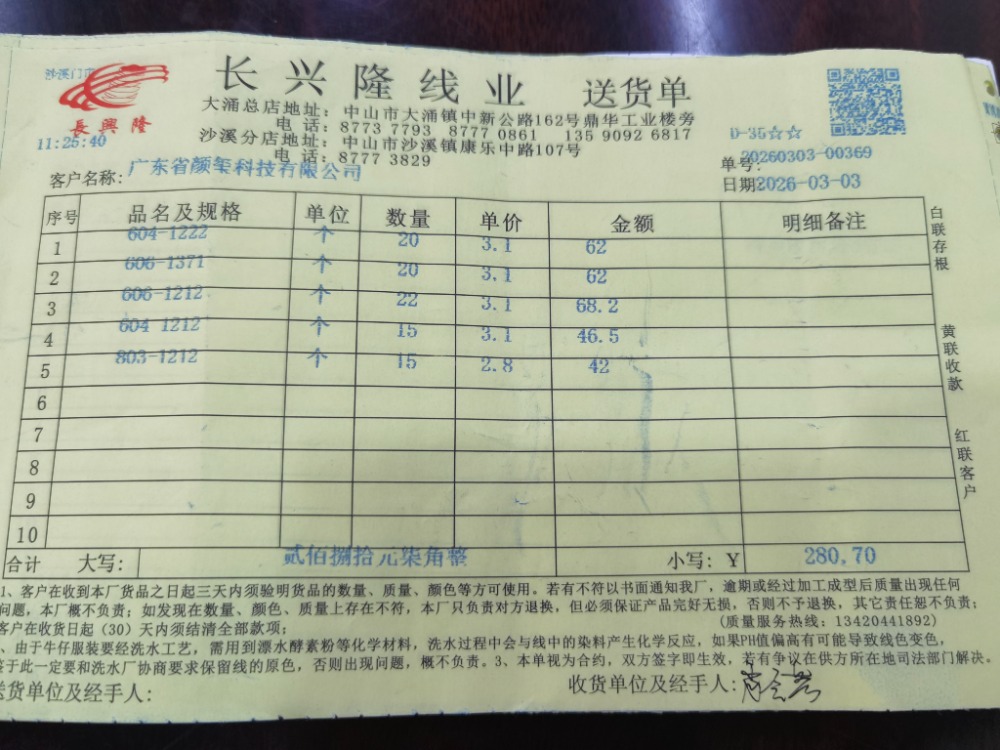 沙溪门市
长兴隆线业 送货单
長興隆
大涌总店地址：中山市大涌镇中新公路162号鼎华工业楼旁
电 话：8773 7793 8777 0861 135 9092 6817
沙溪分店地址：中山市沙溪镇康乐中路107号
电 话：8777 3829
11:25:40
D-35☆☆
单号：20260303-00369
客户名称：广东省颜玺科技有限公司
日期2026-03-03
序号 品名及规格 单位 数量 单价 金额 明细备注
1 604-1222 个 20 3.1 62
2 606-1371 个 20 3.1 62
3 606-1212 个 22 3.1 68.2
4 604 1212 个 15 3.1 46.5
5 803-1212 个 15 2.8 42
6
7
8
9
10
合计 大写： 贰佰捌拾元柒角整 小写：￥ 280.70
白联存根
黄联收款
红联客户
1、客户在收到本厂货品之日起三天内须验明货品的数量、质量、颜色等方可使用。若有不符以书面通知我厂，逾期或经过加工成型后质量出现任何
问题，本厂概不负责；如发现在数量、颜色、质量上存在不符，本厂只负责对方退换，但必须保证产品完好无损，否则不予退换，其它责任恕不负责；
客户在收货日起（30）天内须结清全部款项； (质量服务热线：13420441892)
、由于牛仔服装要经洗水工艺，需用到漂水酵素粉等化学材料，洗水过程中会与线中的染料产生化学反应，如果PH值偏高有可能导致线色变色，
鉴于此一定要和洗水厂协商要求保留线的原色，否则出现问题，概不负责。3、本单视为合约，双方签字即生效，若有争议在供方所在地司法部门解决。
送货单位及经手人： 收货单位及经手人：